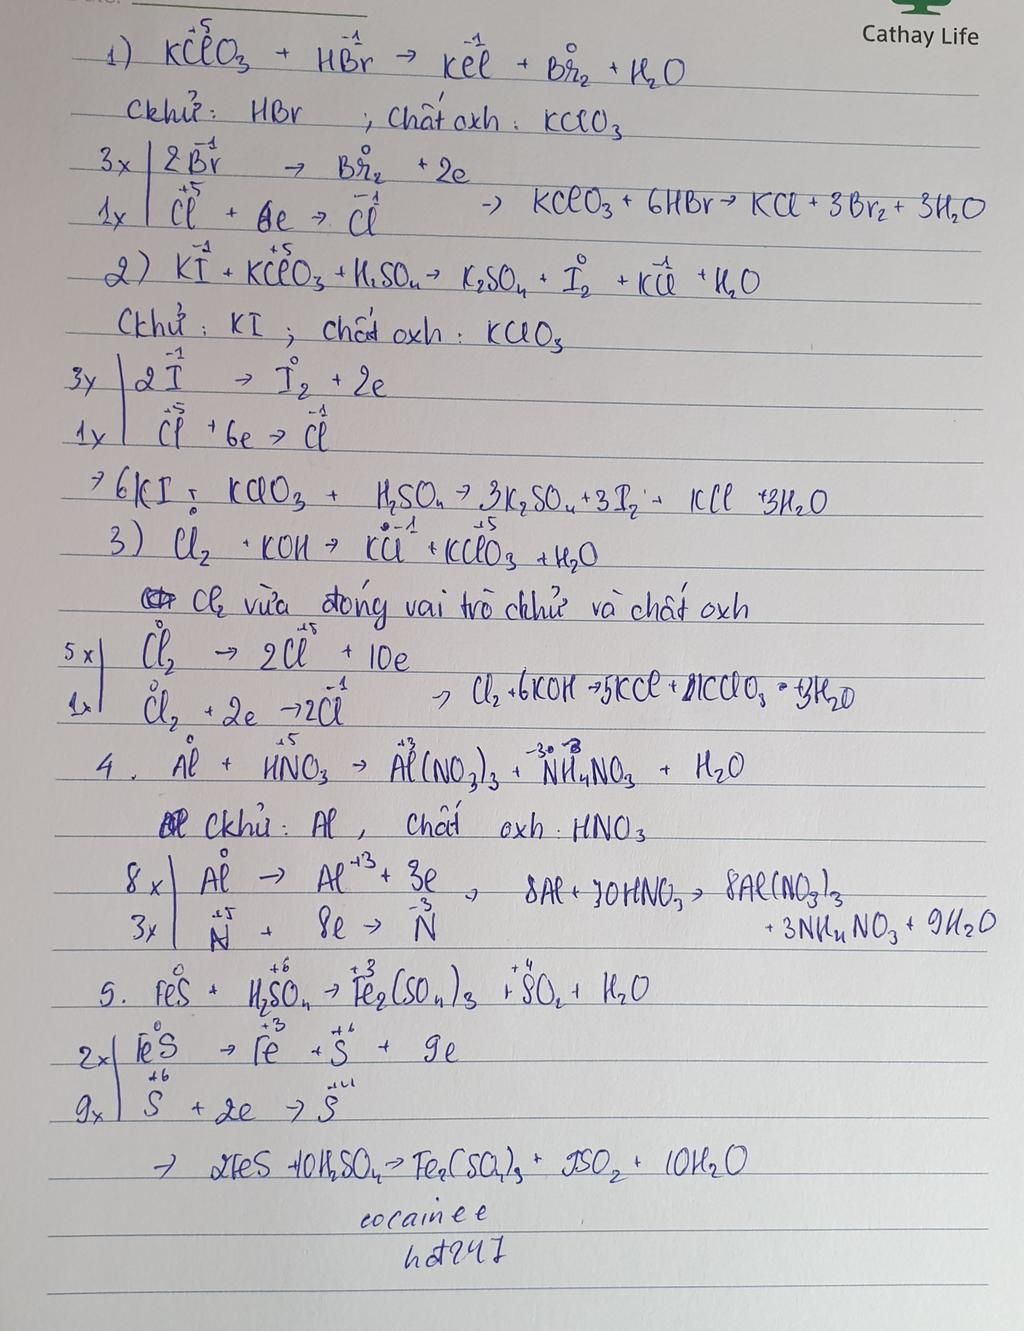 Cathay Life
1) KClO₃ + HBr → KCl + Br₂ + H₂O
+5 -1 -1 0
Ckhử: HBr ; Chất oxh: KClO₃
3x | 2Br⁻¹ → Br₂⁰ + 2e
1x | Cl⁺⁵ + 6e → Cl⁻¹ → KClO₃ + 6HBr → KCl + 3Br₂ + 3H₂O
2) KI + KClO₃ + H₂SO₄ → K₂SO₄ + I₂ + KCl + H₂O
-1 +5 0 -1
Ckhử: KI ; chất oxh: KClO₃
3x | 2I⁻¹ → I₂⁰ + 2e
1x | Cl⁺⁵ + 6e → Cl⁻¹
→ 6KI + KClO₃ + H₂SO₄ → 3K₂SO₄ + 3I₂ + KCl + 3H₂O
3) Cl₂⁰ + KOH → KCl⁻¹ + KCl⁺⁵O₃ + H₂O
Cl₂ vừa đóng vai trò ckhử và chất oxh
5x | Cl₂⁰ → 2Cl⁺⁵ + 10e
1x | Cl₂⁰ + 2e → 2Cl⁻¹ → Cl₂ + 6KOH → 5KCl + KClO₃ + 3H₂O
4. Al + HNO₃ → Al(NO₃)₃ + NH₄NO₃ + H₂O
0 +5 +3 -3
Ckhử: Al, chất oxh: HNO₃
8x | Al⁰ → Al⁺³ + 3e → 8Al + 30HNO₃ → 8Al(NO₃)₃
3x | N⁺⁵ + 8e → N⁻³ + 3NH₄NO₃ + 9H₂O
5. FeS + H₂SO₄ → Fe₂(SO₄)₃ + SO₂ + H₂O
0 +6 +3 +4
2x | FeS⁰ → Fe⁺³ + S⁺⁶ + 9e
9x | S⁺⁶ + 2e → S⁺⁴
→ 2FeS + 10H₂SO₄ → Fe₂(SO₄)₃ + 9SO₂ + 10H₂O
cocainee
hot247